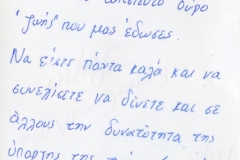 δώρο
"ζωής" που μας έδωσες.
Να είστε πάντα καλά και να
συνεχίσετε να δίνετε και σε
άλλους την δυνατότητα της
ύπαρξης της